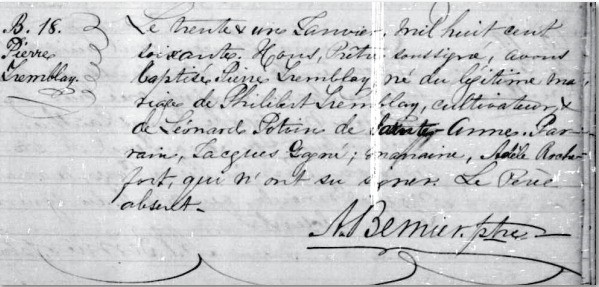 B. 18.
Pierre
Tremblay.
Le trente & un Janvier, mil huit cent
soixante, Nous, Prêtre soussigné, avons
baptisé Pierre Tremblay, né du légitime ma-
riage de Philibert Tremblay, cultivateur, &
de Léonard Potvin de Sainte-Anne. Par-
rain, Jacques Gagné; marraine, Adèle Roche-
fort, qui n'ont su signer. Le Père
absent.
A. Bernier. ptre